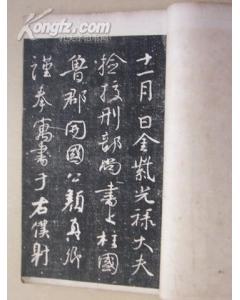 十一月日金紫光祿大夫
檢校刑部尚書上柱國
魯郡開國公顏真卿
謹奉寓書于右僕射